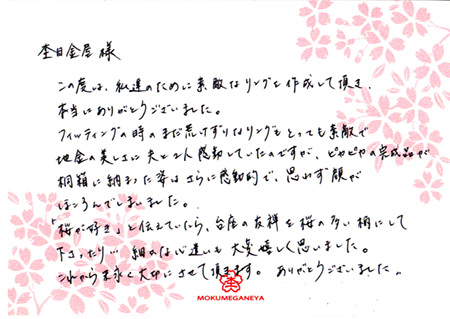 杢目金屋 様
この度は、私達のために素敵なリングを作成して頂き、
本当にありがとうございました。
フィッティングの時のまだ荒けずりなリングもとっても素敵で
地金の美しさに夫と2人感動していたのですが、ピカピカの完成品が
桐箱に納まった姿はさらに感動的で、思わず顔が
ほころんでしまいました。
「桜が好き」と伝えていたら、台座の友禅を桜の多い柄にして
下さったり… 細かな心遣いも大変嬉しく思いました。
これから末永く大切にさせて頂きます。 ありがとうございました。
MOKUMEGANEYA